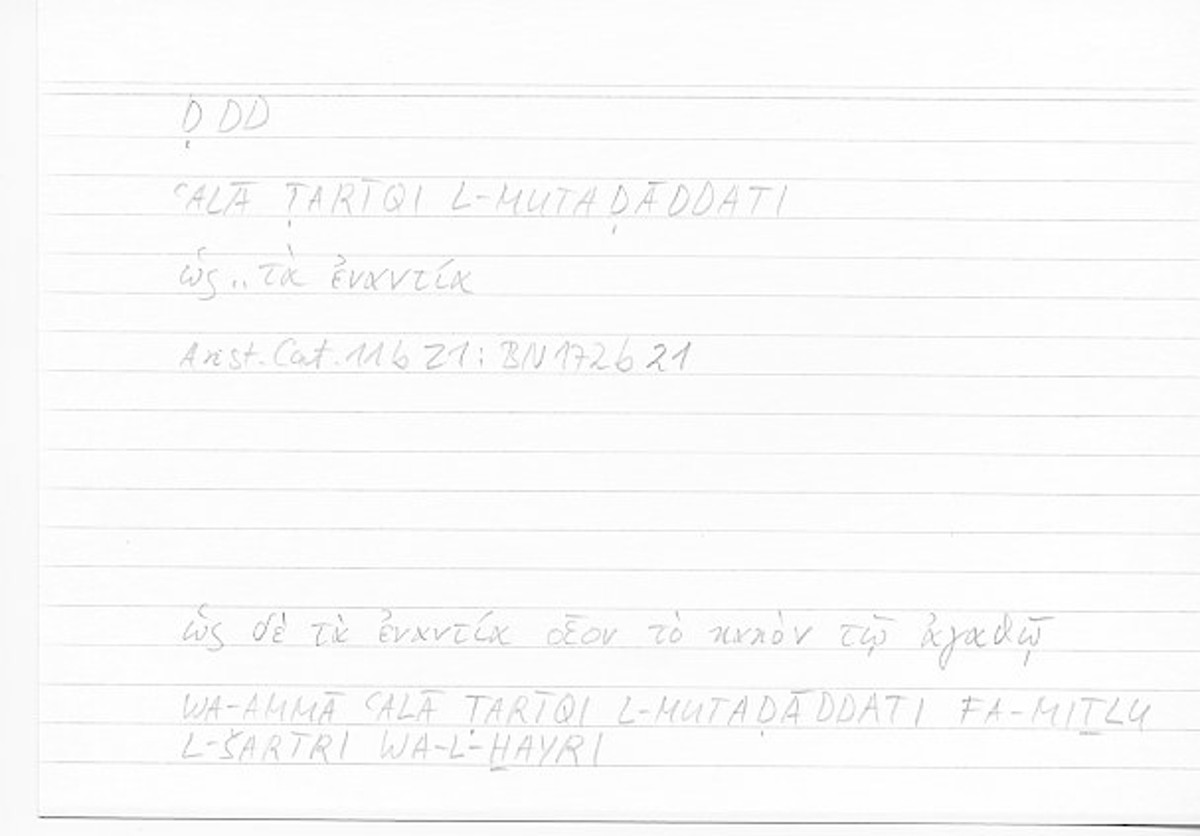 Ḍ DD
ʿALĀ ṬARĪQI L-MUTAḌĀDDATI
ὡς .. τὰ ἐναντία
Arist. Cat. 11 b 21 : BN 172 b 21
ὡς δὲ τὰ ἐναντία οἷον τὸ κακὸν τῷ ἀγαθῷ
WA-AMMĀ ʿALĀ ṬARĪQI L-MUTAḌĀDDATI FA-MIṮLU
L-ŠARTRI WA-L-ḪAYRI